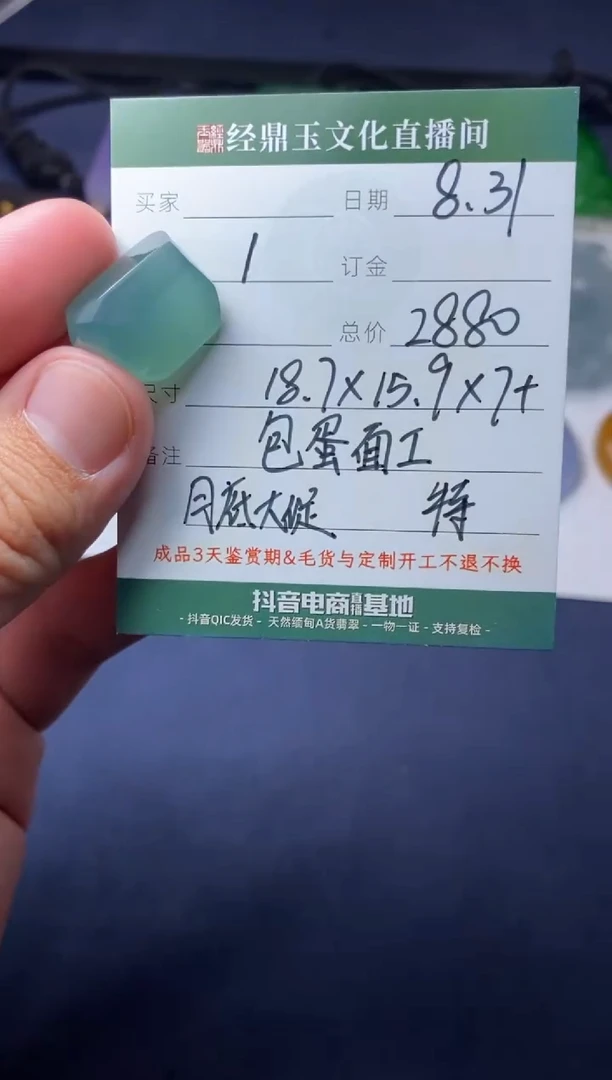 经鼎玉文化直播间
买家 日期 8.31
1 订金
总价 2880
尺寸 18.7×15.9×7+
备注 包蛋面工
月底大促 特
成品3天鉴赏期&毛货与定制开工不退不换
抖音电商直播基地
- 抖音QIC发货 - 天然缅甸A货翡翠 - 一物一证 - 支持复检 -